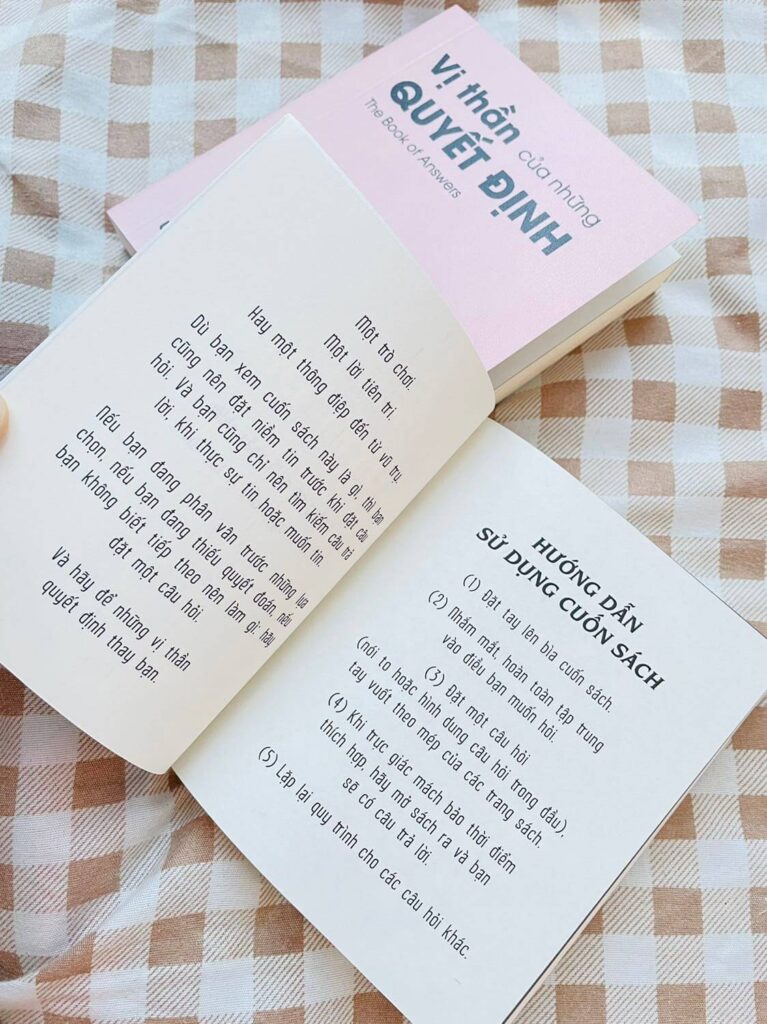 Vị thần của những
QUYẾT ĐỊNH
The Book of Answers
Một trò chơi.
Một lời tiên tri.
Hay một thông điệp đến từ vũ trụ.
Dù bạn xem cuốn sách này là gì, thì bạn
cũng nên đặt niềm tin trước khi đặt câu
hỏi. Và bạn cũng chỉ nên tìm kiếm câu trả
lời, khi thực sự tin hoặc muốn tin.
Nếu bạn đang phân vân trước những lựa
chọn, nếu bạn đang thiếu quyết đoán, nếu
bạn không biết tiếp theo nên làm gì: hãy
đặt một câu hỏi.
Và hãy để những vị thần
quyết định thay bạn.
HƯỚNG DẪN
SỬ DỤNG CUỐN SÁCH
(1) Đặt tay lên bìa cuốn sách.
(2) Nhắm mắt, hoàn toàn tập trung
vào điều bạn muốn hỏi.
(3) Đặt một câu hỏi
(nói to hoặc hình dung câu hỏi trong đầu),
tay vuốt theo mép của các trang sách.
(4) Khi trực giác mách bảo thời điểm
thích hợp, hãy mở sách ra và bạn
sẽ có câu trả lời.
(5) Lặp lại quy trình cho các câu hỏi khác.